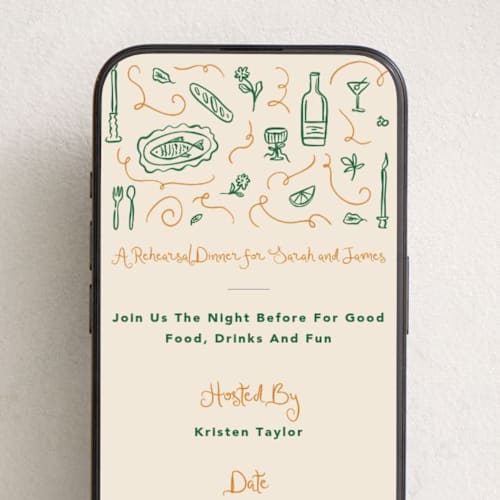 A Rehearsal Dinner for Sarah and James
Join Us The Night Before For Good
Food, Drinks And Fun
Hosted By
Kristen Taylor
Date